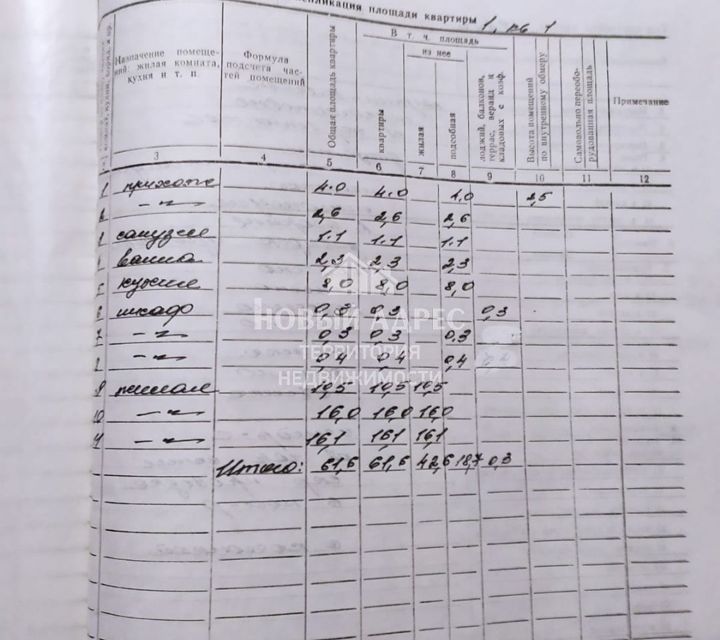 экспликация площади квартиры 1, кв 1
Назначение помеще-
ний: жилая комната,
кухня и т. п.
Формула
подсчета час-
тей помещений
Общая площадь квартиры
В т. ч. площадь
из нее
квартиры
жилая
подсобная
лоджий, балконов,
террас, веранд и
кладовых с коэф.
Высота помещений
по внутреннему обмеру
Самовольно переобо-
рудованная площадь
Примечание
3 4 5 6 7 8 9 10 11 12
прихоже 4.0 4.0 4.0 2,5
— " — 2,6 2,6 2,6
санузле 1.1 1.1 1.1
ванна 2,3 2,3 2,3
5 кухне 8,0 8,0 8,0
шкаф 0,3 0,3 0,3
7 — " — 0,3 0,3 0,3
— " — 0,4 0,4 0,4
9 10,5 10,5 10,5
10 — " — 16,0 16,0 16,0
— " — 16,1 16,1 16,1
Итого: 61,6 61,6 42,6 18,7 0,3
НОВЫЙ АДРЕС
ТЕРРИТОРИЯ
НЕДВИЖИМОСТИ